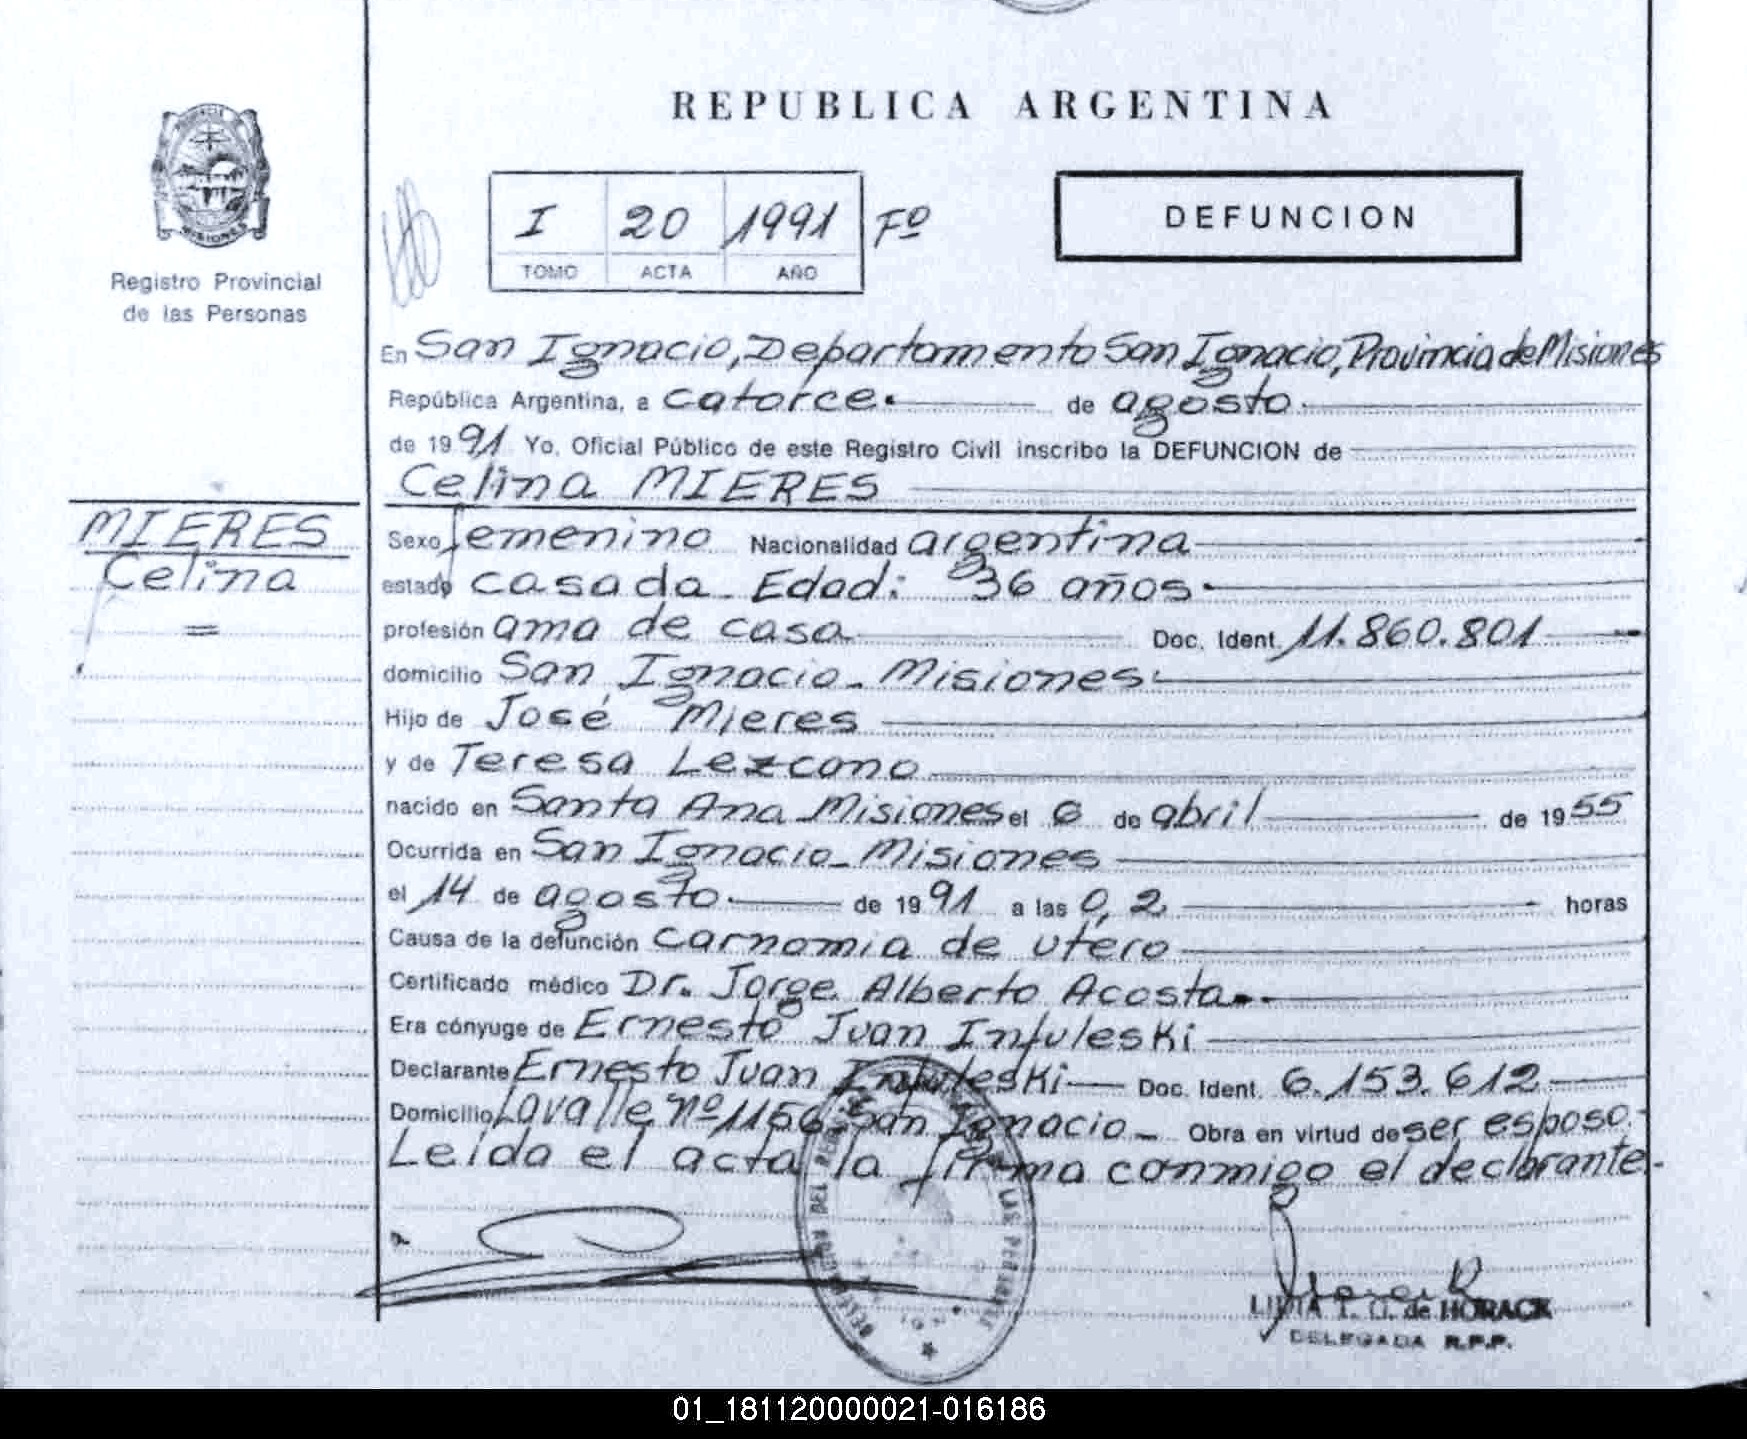 REPUBLICA ARGENTINA
PROVINCIA
MISIONES
Registro Provincial
de las Personas
I 20 1991 Fº
TOMO ACTA AÑO
DEFUNCION
En San Ignacio, Departamento San Ignacio, Provincia de Misiones
República Argentina, a catorce. de agosto
de 1991 Yo, Oficial Público de este Registro Civil inscribo la DEFUNCION de
Celina MIERES
MIERES
Celina
=
Sexo femenino Nacionalidad argentina
estado casada. Edad: 36 años
profesión ama de casa Doc. Ident. 11.860.801
domicilio San Ignacio - Misiones
Hijo de José Mieres
y de Teresa Lezcano
nacido en Santa Ana Misiones el 6 de abril de 1955
Ocurrida en San Ignacio - Misiones
el 14 de agosto de 1991 a las 0,2 horas
Causa de la defunción carnomia de utero
Certificado médico Dr. Jorge Alberto Acosta
Era cónyuge de Ernesto Juan Infuleski
Declarante Ernesto Juan Infuleski Doc. Ident. 6.153.612
Domicilio Lavalle nº 1156 San Ignacio - Obra en virtud de ser esposo.
Leída el acta la firma conmigo el declarante.
LAS PERSONAS
de HORACK
DELEGADA R.P.P.
01_181120000021-016186